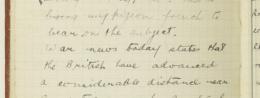 bring my pigeon french to
bear on the subject.
War news today states that
the British have advanced
a considerable distance near